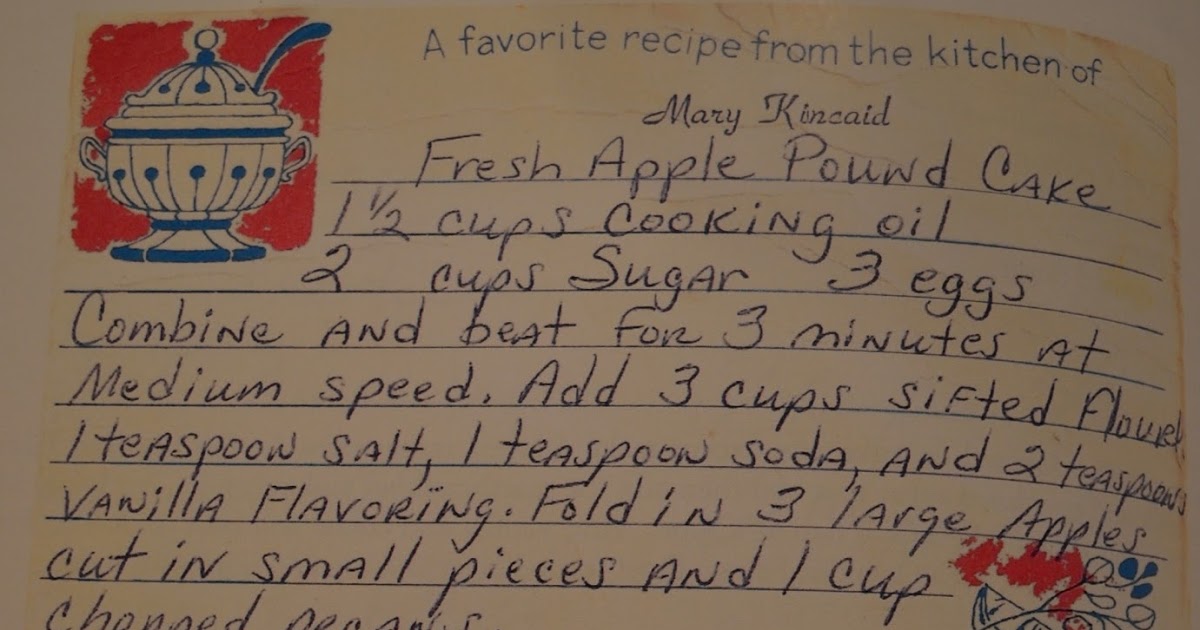 A favorite recipe from the kitchen of
Mary Kincaid
Fresh Apple Pound Cake
1 1/2 cups cooking oil
2 cups Sugar 3 eggs
Combine and beat for 3 minutes at
Medium speed. Add 3 cups sifted flour
1 teaspoon salt, 1 teaspoon soda, and 2 teaspoons
Vanilla Flavoring. Fold in 3 large Apples
cut in small pieces and 1 cup
chopped pecans.